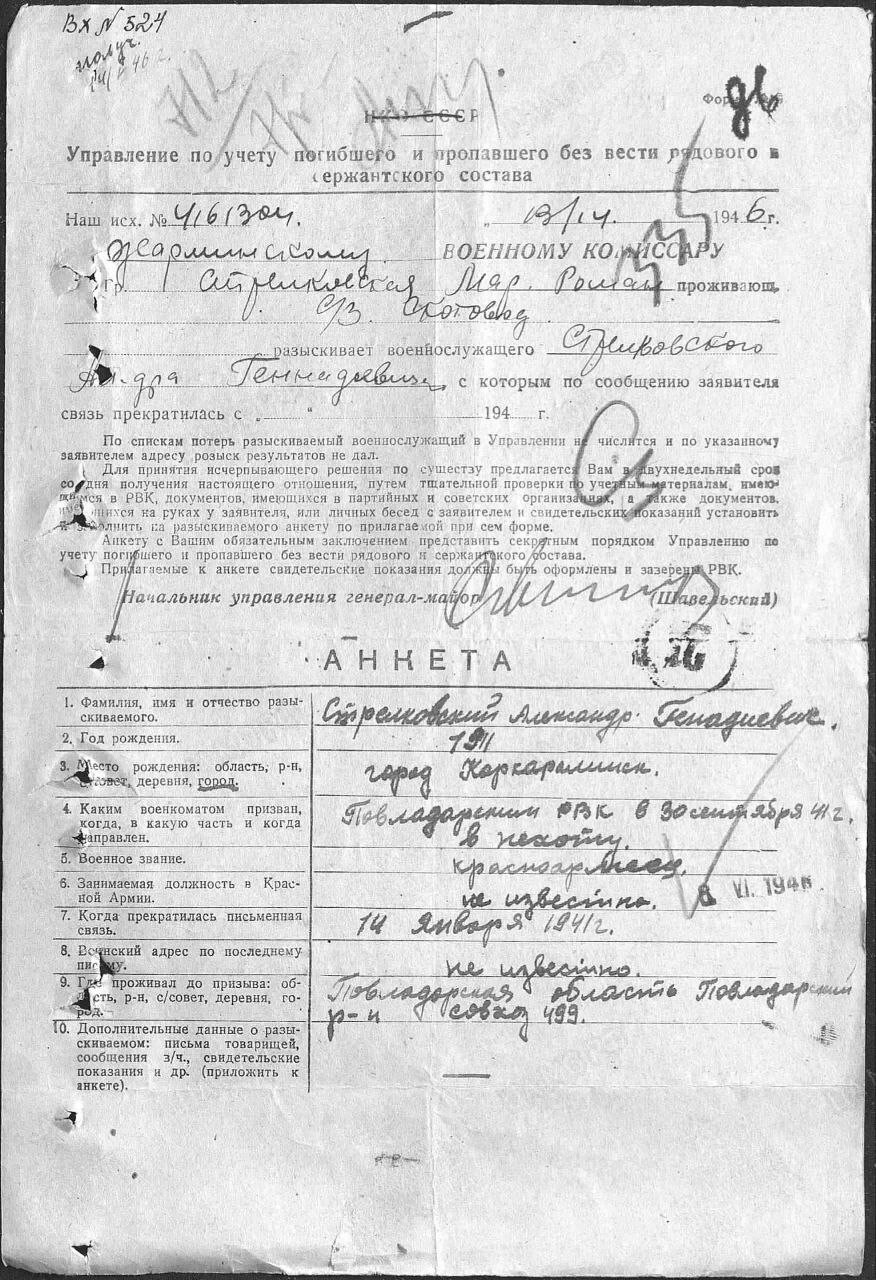 Вх № 524
получ.
НКО СССР
Управление по учету погибшего и пропавшего без вести рядового и
сержантского состава
Наш исх. № 416130ч. „ 13/IV. 1946г.
Жарминскому ВОЕННОМУ КОМИССАРУ
Гр. Стрелковская Мар. Роман проживающ.
С/З. Скотовод
разыскивает военнослужащего Стрелковского
Ал-дра Геннадиевича, с которым по сообщению заявителя
связь прекратилась с „ “ 194 г.
По спискам потерь разыскиваемый военнослужащий в Управлении не числится и по указанному
заявителем адресу розыск результатов не дал.
Для принятия исчерпывающего решения по существу предлагается Вам в двухнедельный срок
со дня получения настоящего отношения, путем тщательной проверки по учетным материалам, имею-
щимся в РВК, документов, имеющихся в партийных и советских организациях, а также документов,
имеющихся на руках у заявителя, или личных бесед с заявителем и свидетельских показаний установить
и заполнить на разыскиваемого анкету по прилагаемой при сем форме.
Анкету с Вашим обязательным заключением представить секретным порядком Управлению по
учету погибшего и пропавшего без вести рядового и сержантского состава.
Прилагаемые к анкете свидетельские показания должны быть оформлены и заверены РВК.
Начальник управления генерал-майор (Шавельский)
АНКЕТА
1. Фамилия, имя и отчество разы-
скиваемого. Стрелковский Александр Генадиевич.
2. Год рождения. 1911
3. Место рождения: область, р-н,
с/совет, деревня, город. город Коркаролинск.
4. Каким военкоматом призван,
когда, в какую часть и когда
направлен. Повладарским РВК в 30 сентября 41 г.
в пехоту.
5. Военное звание. красноармеец.
6. Занимаемая должность в Крас-
ной Армии. не известно.
VI. 1946
7. Когда прекратилась письменная
связь. 14 января 1941г.
8. Воинский адрес по последнему
письму. не известно.
9. Где проживал до призыва: об-
ласть, р-н, с/совет, деревня, го-
род. Повладорская область Повладарский
р-н совхоз 499.
10. Дополнительные данные о разы-
скиваемом: письма товарищей,
сообщения з/ч., свидетельские
показания и др. (приложить к
анкете). —